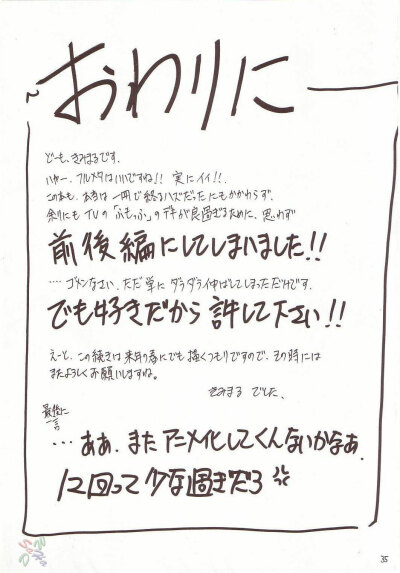 おわりに
どーも、きみまるです。
いやー、フルメタはいいですね!! 実にイイ!!
この本も、本当は一冊で終るハズだったにもかかわらず、
余りにも TVの「ふもっふ」のデキが良過ぎるために、思わず
前後編にしてしまいました!!
‥‥ゴメンなさい、ただ単に ダラダラ伸ばしてしまっただけです。
でも好きだから 許して下さい!!
えーと、この続きは来年の春にでも描くつもりですので、その時には
またよろしくお願いしますね。
きみまる でした、
最後に
一言
‥‥ああ、また アニメイ化してくんないかなぁ
12回って少な過ぎだろ
35